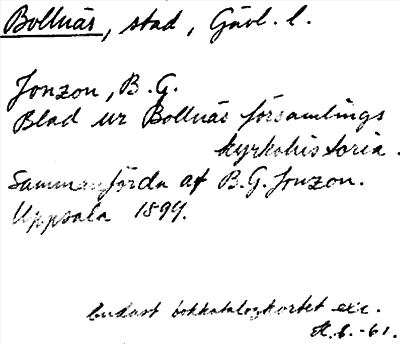 Bollnäs, stad, Gävl. l.
Jonzon, B. G.
Blad ur Bollnäs församlings
kyrkohistoria.
Sammanförda af B. G. Jonzon.
Uppsala 1899.
endast bokkatalogkortet exc.
-61.